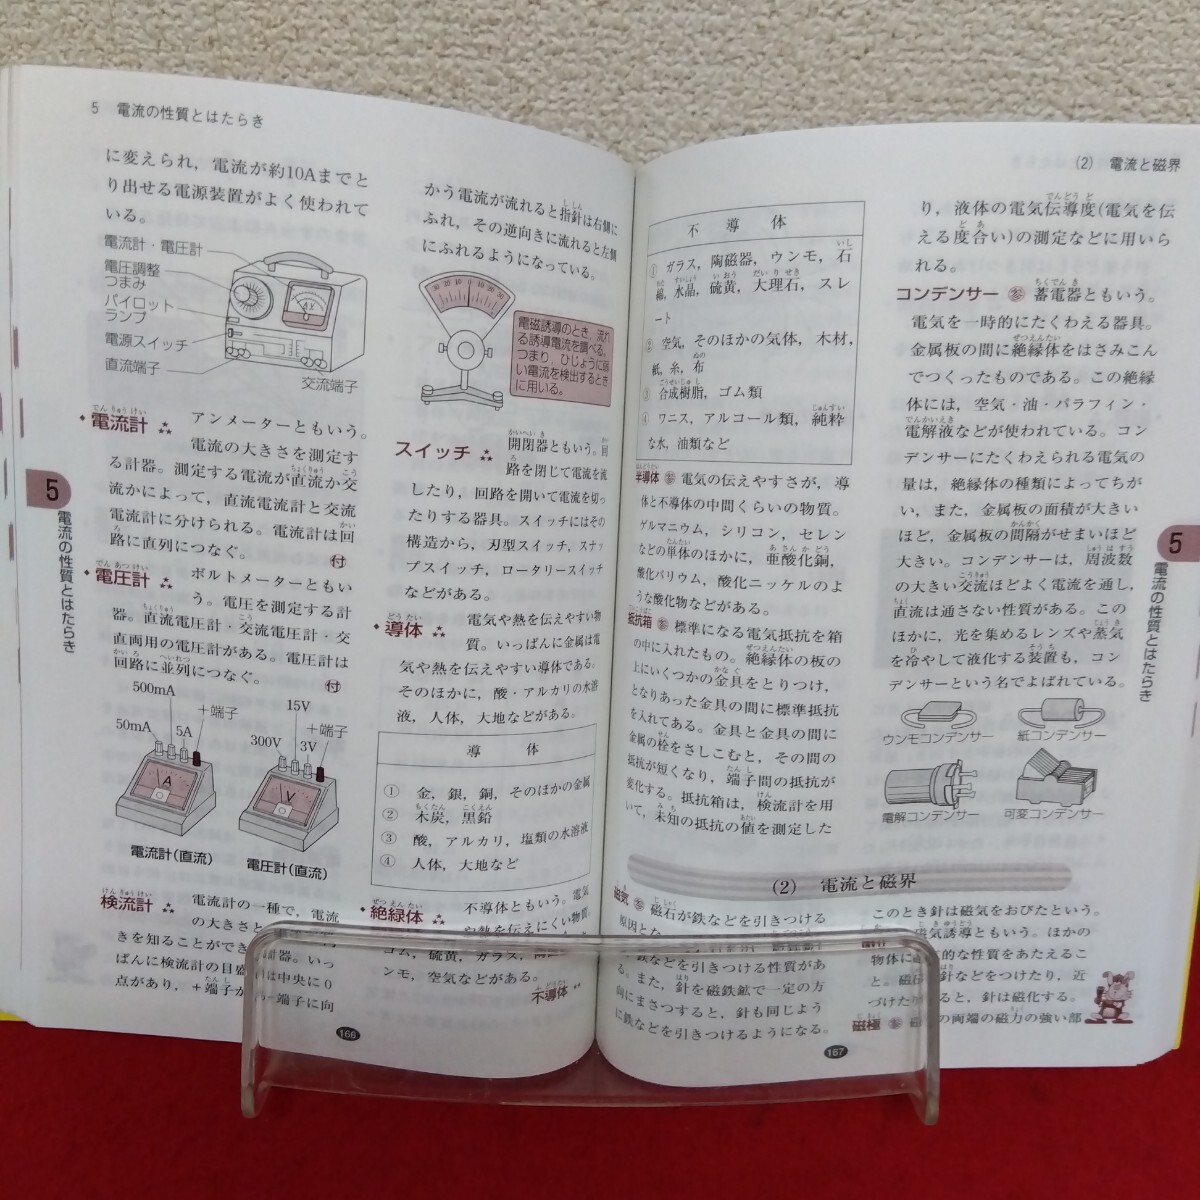 5 電流の性質とはたらき
に変えられ，電流が約10Aまでと
り出せる電源装置がよく使われて
いる。
電流計・電圧計
電圧調整
つまみ
パイロット
ランプ
電源スイッチ
直流端子
交流端子
電流計 アンメーターともいう。
電流の大きさを測定す
る計器。測定する電流が直流か交
流かによって，直流電流計と交流
電流計に分けられる。電流計は回
路に直列につなぐ。 付
電圧計 ボルトメーターともい
う。電圧を測定する計
器。直流電圧計・交流電圧計・交
直両用の電圧計がある。電圧計は
回路に並列につなぐ。 付
500mA
50mA
5A
＋端子
15V
300V
3V
＋端子
A
V
電流計(直流)
電圧計(直流)
検流計 電流計の一種で，電流
の大きさと
きを知ることができ
計器。いっ
ぱんに検流計の目盛
は中央に0
点があり，＋端子か
－端子に向
5
電流の性質とはたらき
166
かう電流が流れると指針は右側に
ふれ，その逆向きに流れると左側
にふれるようになっている。
電磁誘導のとき，流れ
る誘導電流を調べる。
つまり，ひじょうに弱
い電流を検出するとき
に用いる。
スイッチ 開閉器ともいう。回
路を閉じて電流を流
したり，回路を開いて電流を切っ
たりする器具。スイッチにはその
構造から，刃型スイッチ，スナッ
プスイッチ，ロータリースイッチ
などがある。
導体 電気や熱を伝えやすい物
質。いっぱんに金属は電
気や熱を伝えやすい導体である。
そのほかに，酸・アルカリの水溶
液，人体，大地などがある。
導 体
① 金，銀，銅，そのほかの金属
② 木炭，黒鉛
③ 酸，アルカリ，塩類の水溶液
④ 人体，大地など
絶縁体 不導体ともいう。電気
や熱を伝えにくい物質。
ゴム，硫黄，ガラス，
ンモ，空気などがある。
不導体
(2) 電流と磁界
不 導 体
① ガラス，陶磁器，ウンモ，石
綿，水晶，硫黄，大理石，スレ
ート
② 空気，そのほかの気体，木材，
紙，糸，布
③ 合成樹脂，ゴム類
④ ワニス，アルコール類，純粋
な水，油類など
半導体 参 電気の伝えやすさが，導
体と不導体の中間くらいの物質。
ゲルマニウム，シリコン，セレン
などの単体のほかに，亜酸化銅，
酸化バリウム，酸化ニッケルのよ
うな酸化物などがある。
抵抗箱 参 標準になる電気抵抗を箱
の中に入れたもの。絶縁体の板の
上にいくつかの金具をとりつけ，
となりあった金具の間に標準抵抗
を入れてある。金具と金具の間に
金属の栓をさしこむと，その間の
抵抗が短くなり，端子間の抵抗が
変化する。抵抗箱は，検流計を用
いて，未知の抵抗の値を測定した
り，液体の電気伝導度(電気を伝
える度合い)の測定などに用いら
れる。
コンデンサー 参 蓄電器ともいう。
電気を一時的にたくわえる器具。
金属板の間に絶縁体をはさみこん
でつくったものである。この絶縁
体には，空気・油・パラフィン・
電解液などが使われている。コン
デンサーにたくわえられる電気の
量は，絶縁体の種類によってちが
い，また，金属板の面積が大きい
ほど，金属板の間隔がせまいほど
大きい。コンデンサーは，周波数
の大きい交流ほどよく電流を通し，
直流は通さない性質がある。この
ほかに，光を集めるレンズや蒸気
を冷やして液化する装置も，コン
デンサーという名でよばれている。
ウンモコンデンサー
紙コンデンサー
電解コンデンサー
可変コンデンサー
(2) 電流と磁界
磁気 参 磁石が鉄などを引きつける
原因とな
鉄などを引きつける性質があ
る。また，針を磁鉄鉱で一定の方
向にまさつすると，針も同じよう
に鉄などを引きつけるようになる。
このとき針は磁気をおびたという。
磁気誘導ともいう。ほかの
物体に
的な性質をあたえるこ
と。磁石
針などをつけたり，近
づけたり
ると，針は磁化する。
磁極 参
の両端の磁力の強い部
5
電流の性質とはたらき
167